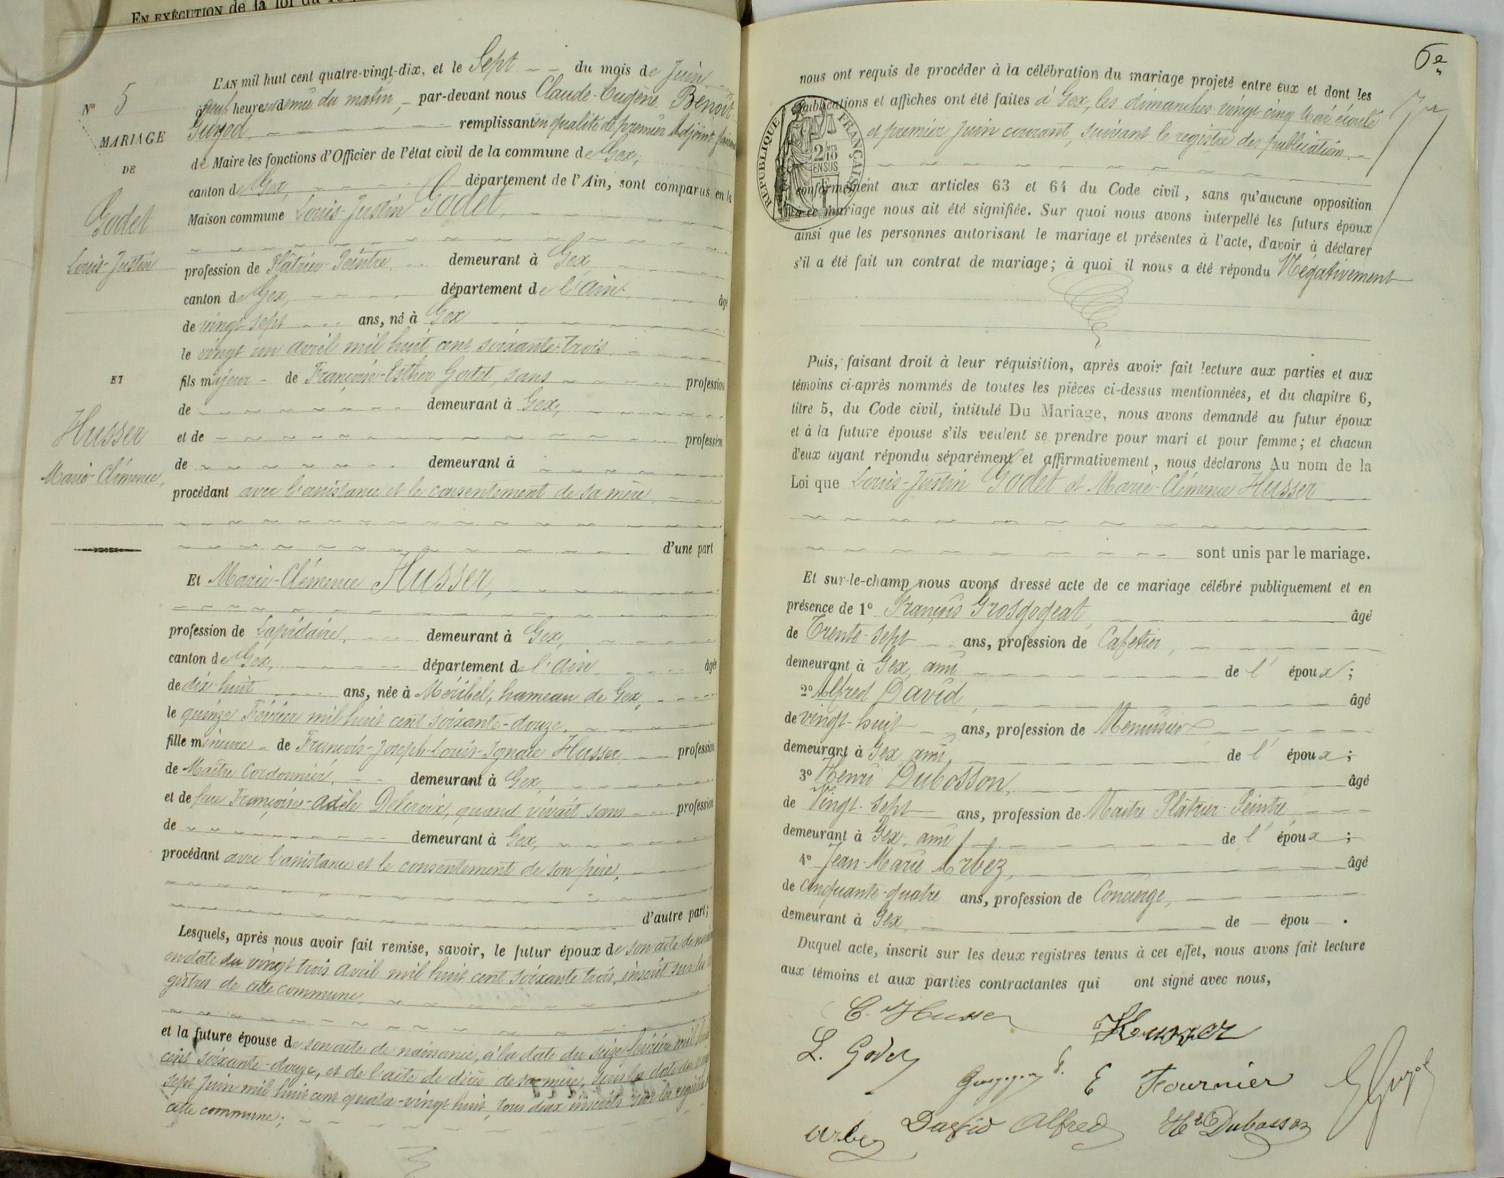 EN EXÉCUTION de la loi du
N° 5
MARIAGE
DE
Godet
Louis-Justin
ET
Husser
Marie-Clémence,
L'AN mil huit cent quatre-vingt-dix, et le Sept du mois de Juin
à heures du matin, par-devant nous Claude-Eugène Benoit
remplissant en qualité de premier Adjoint
de Maire les fonctions d'Officier de l'état civil de la commune de Gex,
canton de Gex, département de l'Ain, sont comparus en la
Maison commune Louis-Justin Godet,
profession de Plâtrier-Peintre demeurant à Gex
canton de Gex, département de l'ain âgé
de vingt-sept ans, né à Gex
le vingt un avril mil huit cent soixante-trois
fils majeur de Françoise-Esther Godet, sans profession
de demeurant à Gex,
et de profession
de demeurant à
procédant avec l'assistance et le consentement de sa mère
d'une part
Et Marie-Clémence Husser,
profession de Lapidaire, demeurant à Gex,
canton de Gex, département de l'ain âgée
de dix-huit ans, née à Méribel, hameau de Gex,
le quinze Février mil huit cent soixante-douze,
fille mineure de François-Joseph-Louis-Ignace Husser profession
de Maître Cordonnier, demeurant à Gex,
et de feue Françoise-Adèle Delacroix, quand vivait sans profession
de demeurant à Gex,
procédant avec l'assistance et le consentement de son père,
d'autre part;
Lesquels, après nous avoir fait remise, savoir, le futur époux de son acte de
en date du vingt trois avril mil huit cent soixante trois, inscrit sur les
gistres de cette commune,
et la future épouse de son acte de naissance, à la date du seize février mil huit
cent soixante-douze, et de l'acte de décès de sa mère, sous la date du
sept Juin mil huit cent quatre-vingt huit, tous deux inscrits sur les registres
cette commune;
6e
nous ont requis de procéder à la célébration du mariage projeté entre eux et dont les
publications et affiches ont été faites à Gex, les dimanches vingt cinq mai écoulé
et premier Juin courant, suivant le registre de publication.
RÉPUBLIQUE FRANÇAISE
conformément aux articles 63 et 64 du Code civil, sans qu'aucune opposition
à ce mariage nous ait été signifiée. Sur quoi nous avons interpellé les futurs époux
ainsi que les personnes autorisant le mariage et présentes à l'acte, d'avoir à déclarer
s'il a été fait un contrat de mariage; à quoi il nous a été répondu Négativement
Puis, faisant droit à leur réquisition, après avoir fait lecture aux parties et aux
témoins ci-après nommés de toutes les pièces ci-dessus mentionnées, et du chapitre 6,
titre 5, du Code civil, intitulé Du Mariage, nous avons demandé au futur époux
et à la future épouse s'ils veulent se prendre pour mari et pour femme; et chacun
d'eux ayant répondu séparément et affirmativement, nous déclarons Au nom de la
Loi que Louis-Justin Godet et Marie-Clémence Husser
sont unis par le mariage.
Et sur-le-champ nous avons dressé acte de ce mariage célébré publiquement et en
présence de 1° François Grosgogeat âgé
de Trente-sept ans, profession de Cafetier,
demeurant à Gex, ami de l'époux;
2° Alfred David, âgé
de vingt-huit ans, profession de Menuisier
demeurant à Gex, ami, de l'époux;
3° Henri Dubosson, âgé
de Vingt-sept ans, profession de Maître Plâtrier-Peintre
demeurant à Gex, ami de l'époux;
4° Jean-Marie Arbez, âgé
de Cinquante-quatre ans, profession de Concierge,
demeurant à Gex, de — épou — .
Duquel acte, inscrit sur les deux registres tenus à cet effet, nous avons fait lecture
aux témoins et aux parties contractantes qui ont signé avec nous,
C. Husser
Husser
L. Godet
E Fournier
Arbez
David Alfred
Hri Dubosson